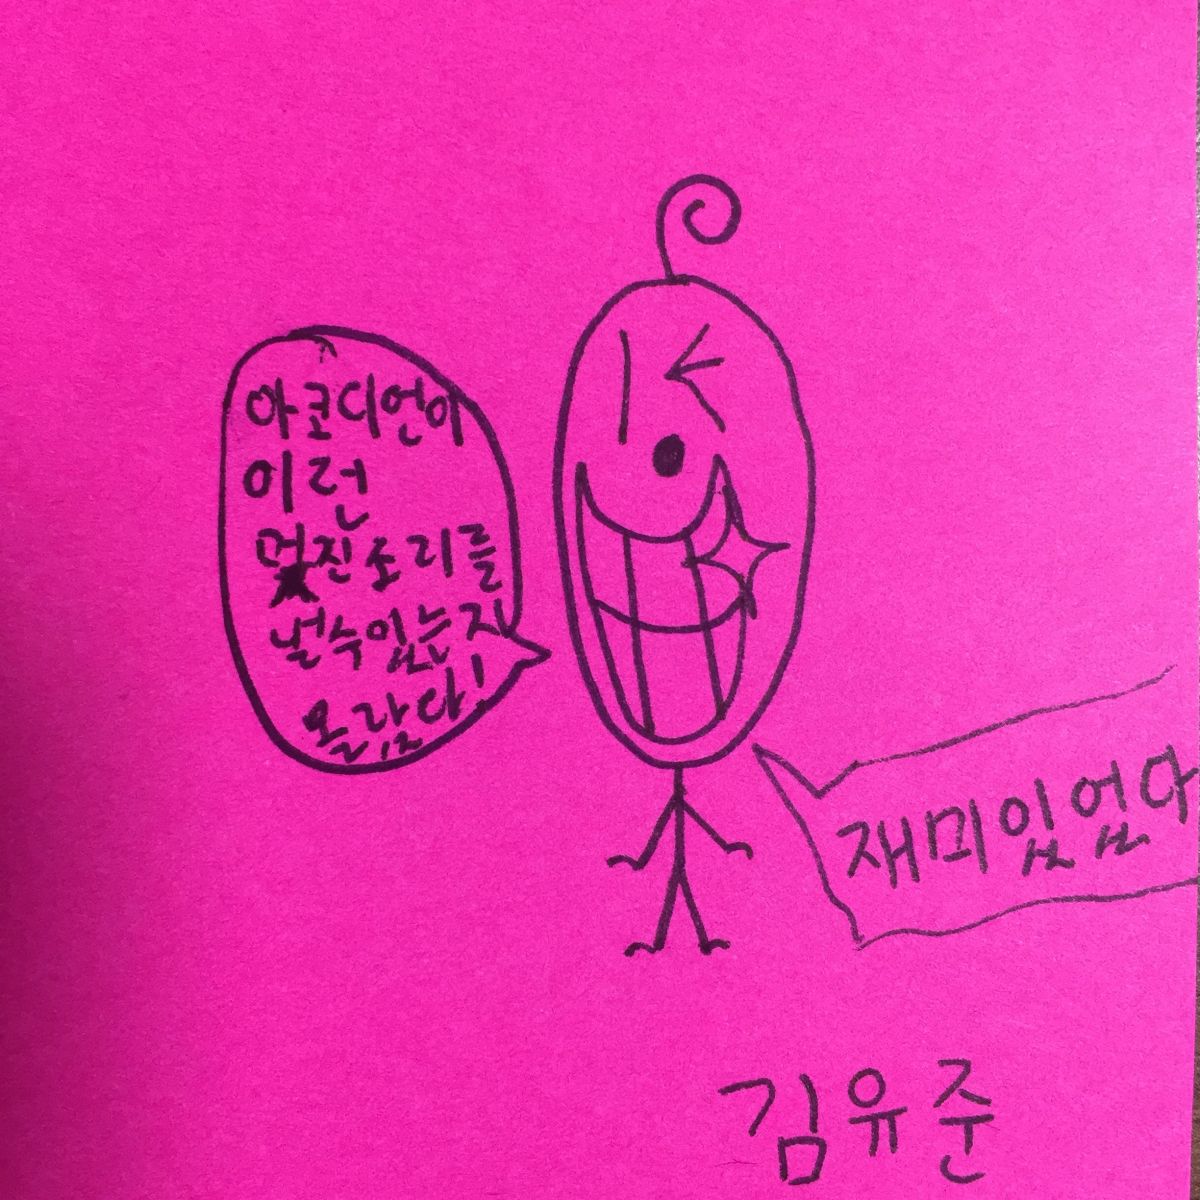 아코디언이
이런
멋진소리를
낼수있는지
몰랐다!
재미있었다
김유준